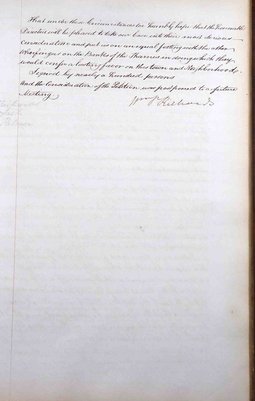 That under these Circumstances we humbly hope that the Honorable
Director will be pleased to take our Case into their most serious
Consideration and put us on an equal footing with the other
Wharfingers on the Banks of the Thames in doing which they
would confer a lasting favor on this town and Neighborhood
Signed by nearly a hundred persons
And the Consideration of the Petition was postponed to a future
Meeting
Wm Richards